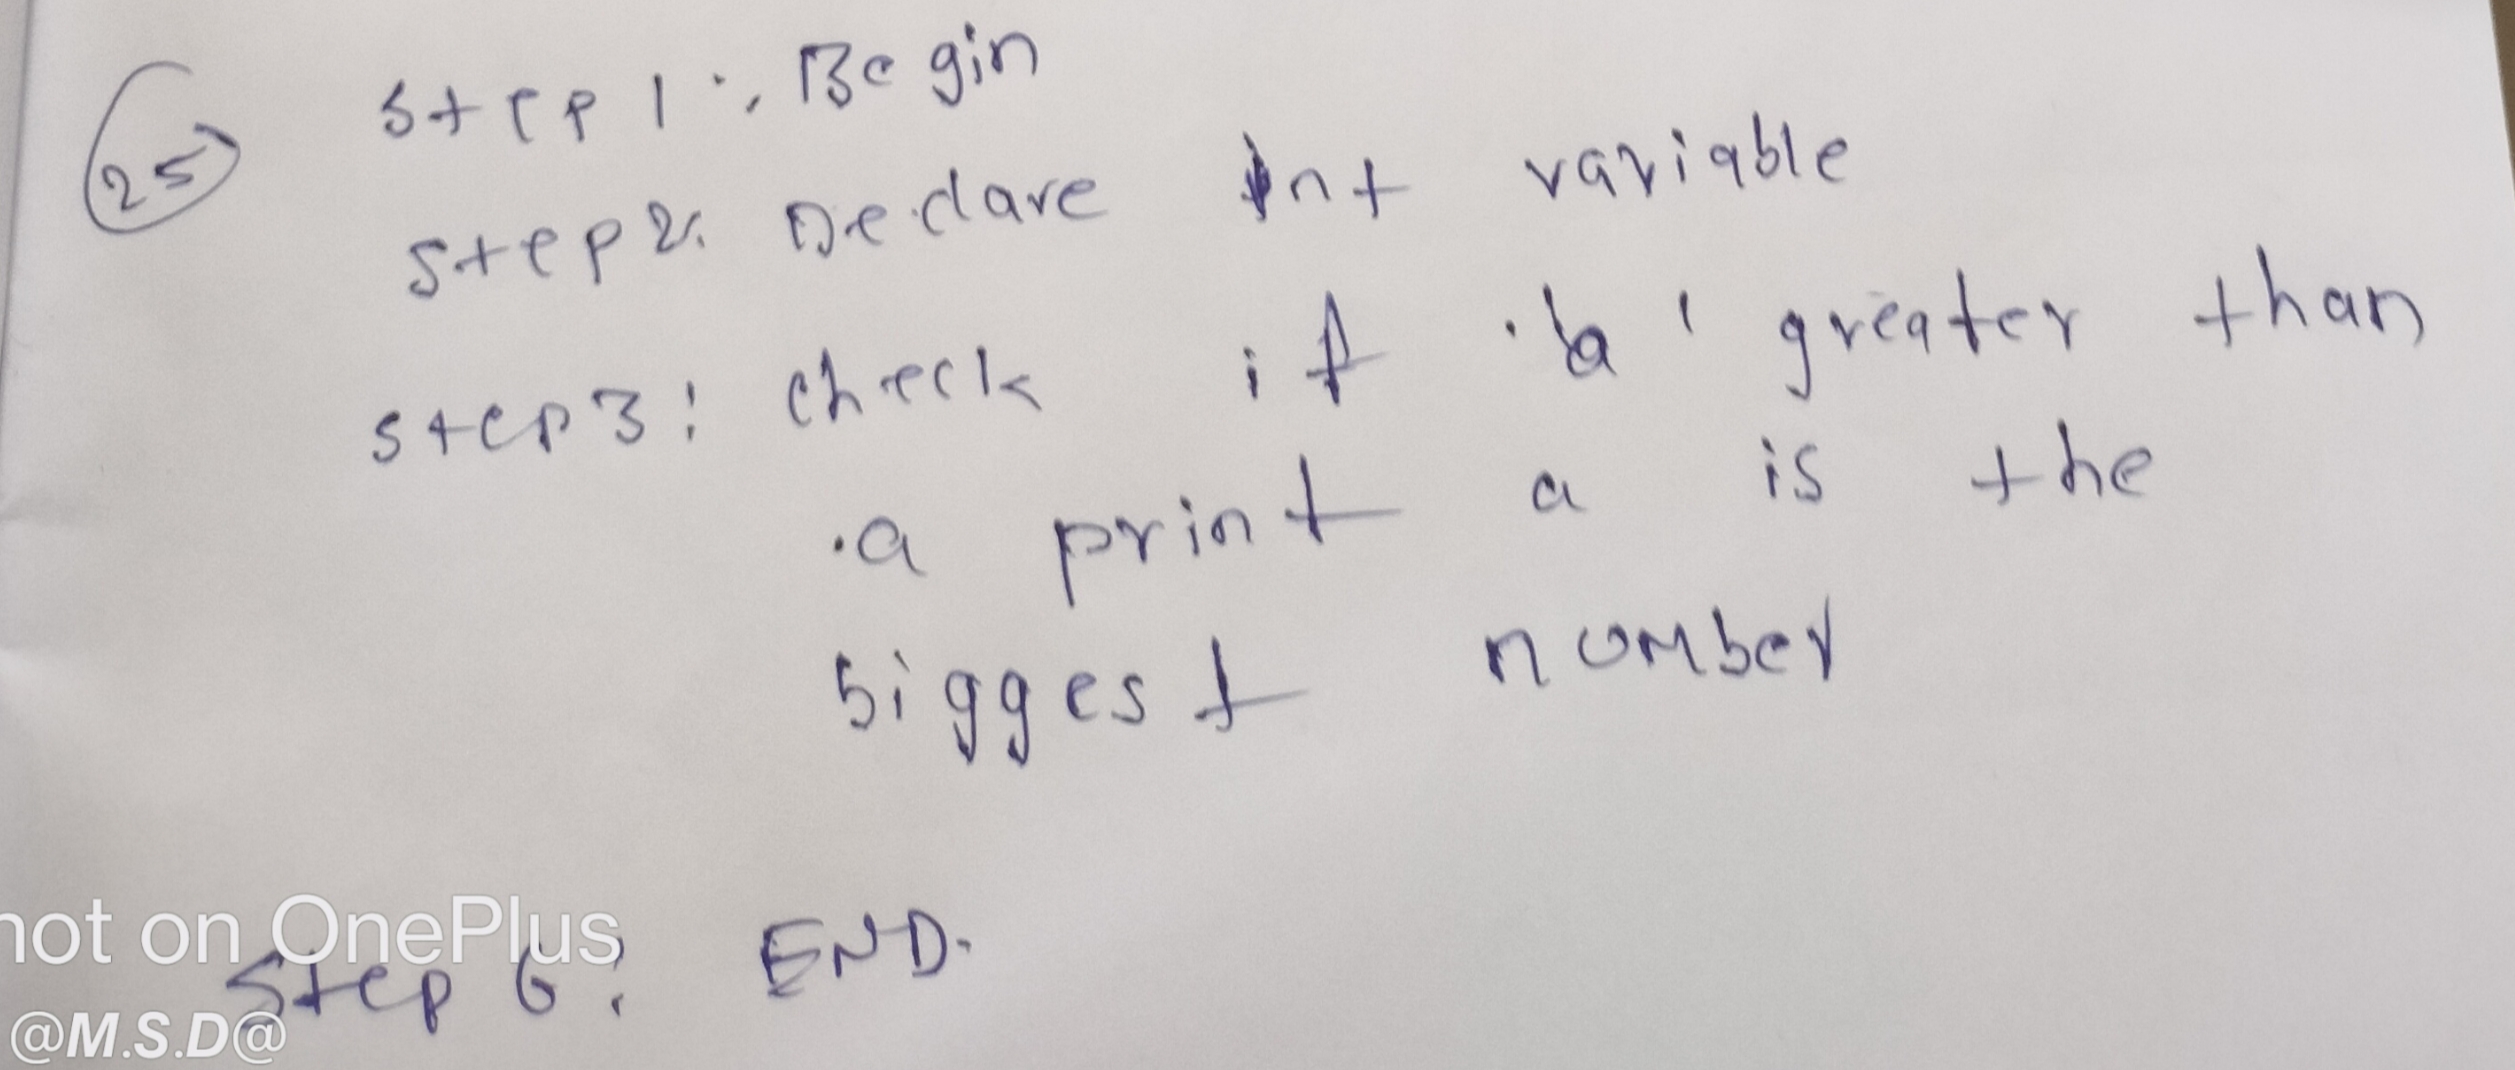 25)
Step 1: Begin
Step 2: Declare int variable
Step 3: check if 'a' greater than
.a print a is the
biggest number
Step 6: END.
hot on OnePlus
@M.S.D@